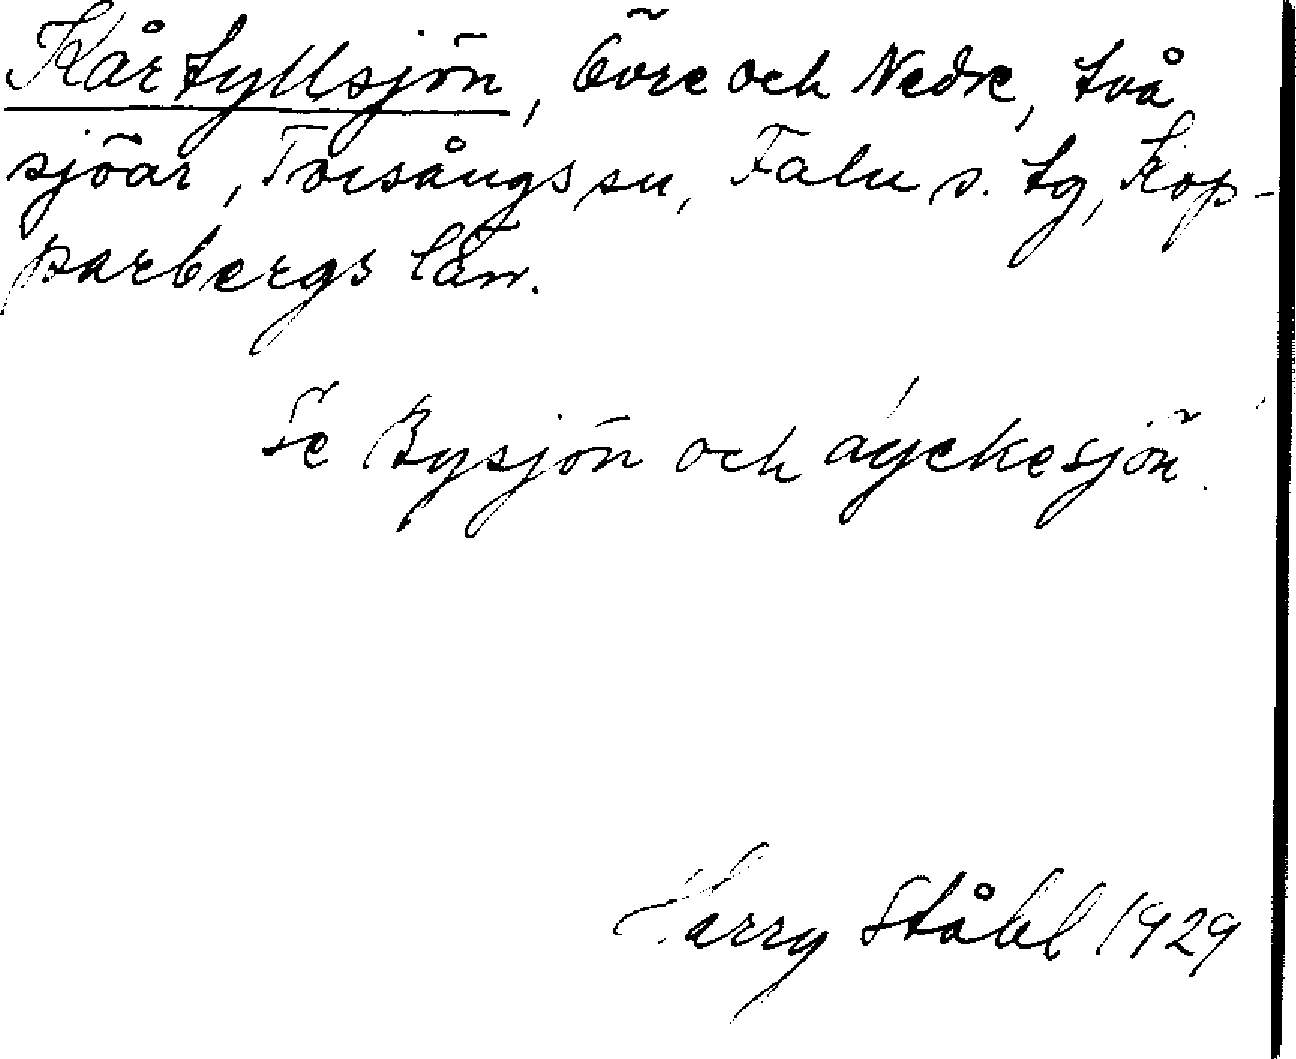 Kårtyllsjön, Övre och Nedre, två
sjöar, Torsångs sn, Falu s. tg, Kop-
parbergs län.
Se Bysjön och
Harry Ståhl 1929